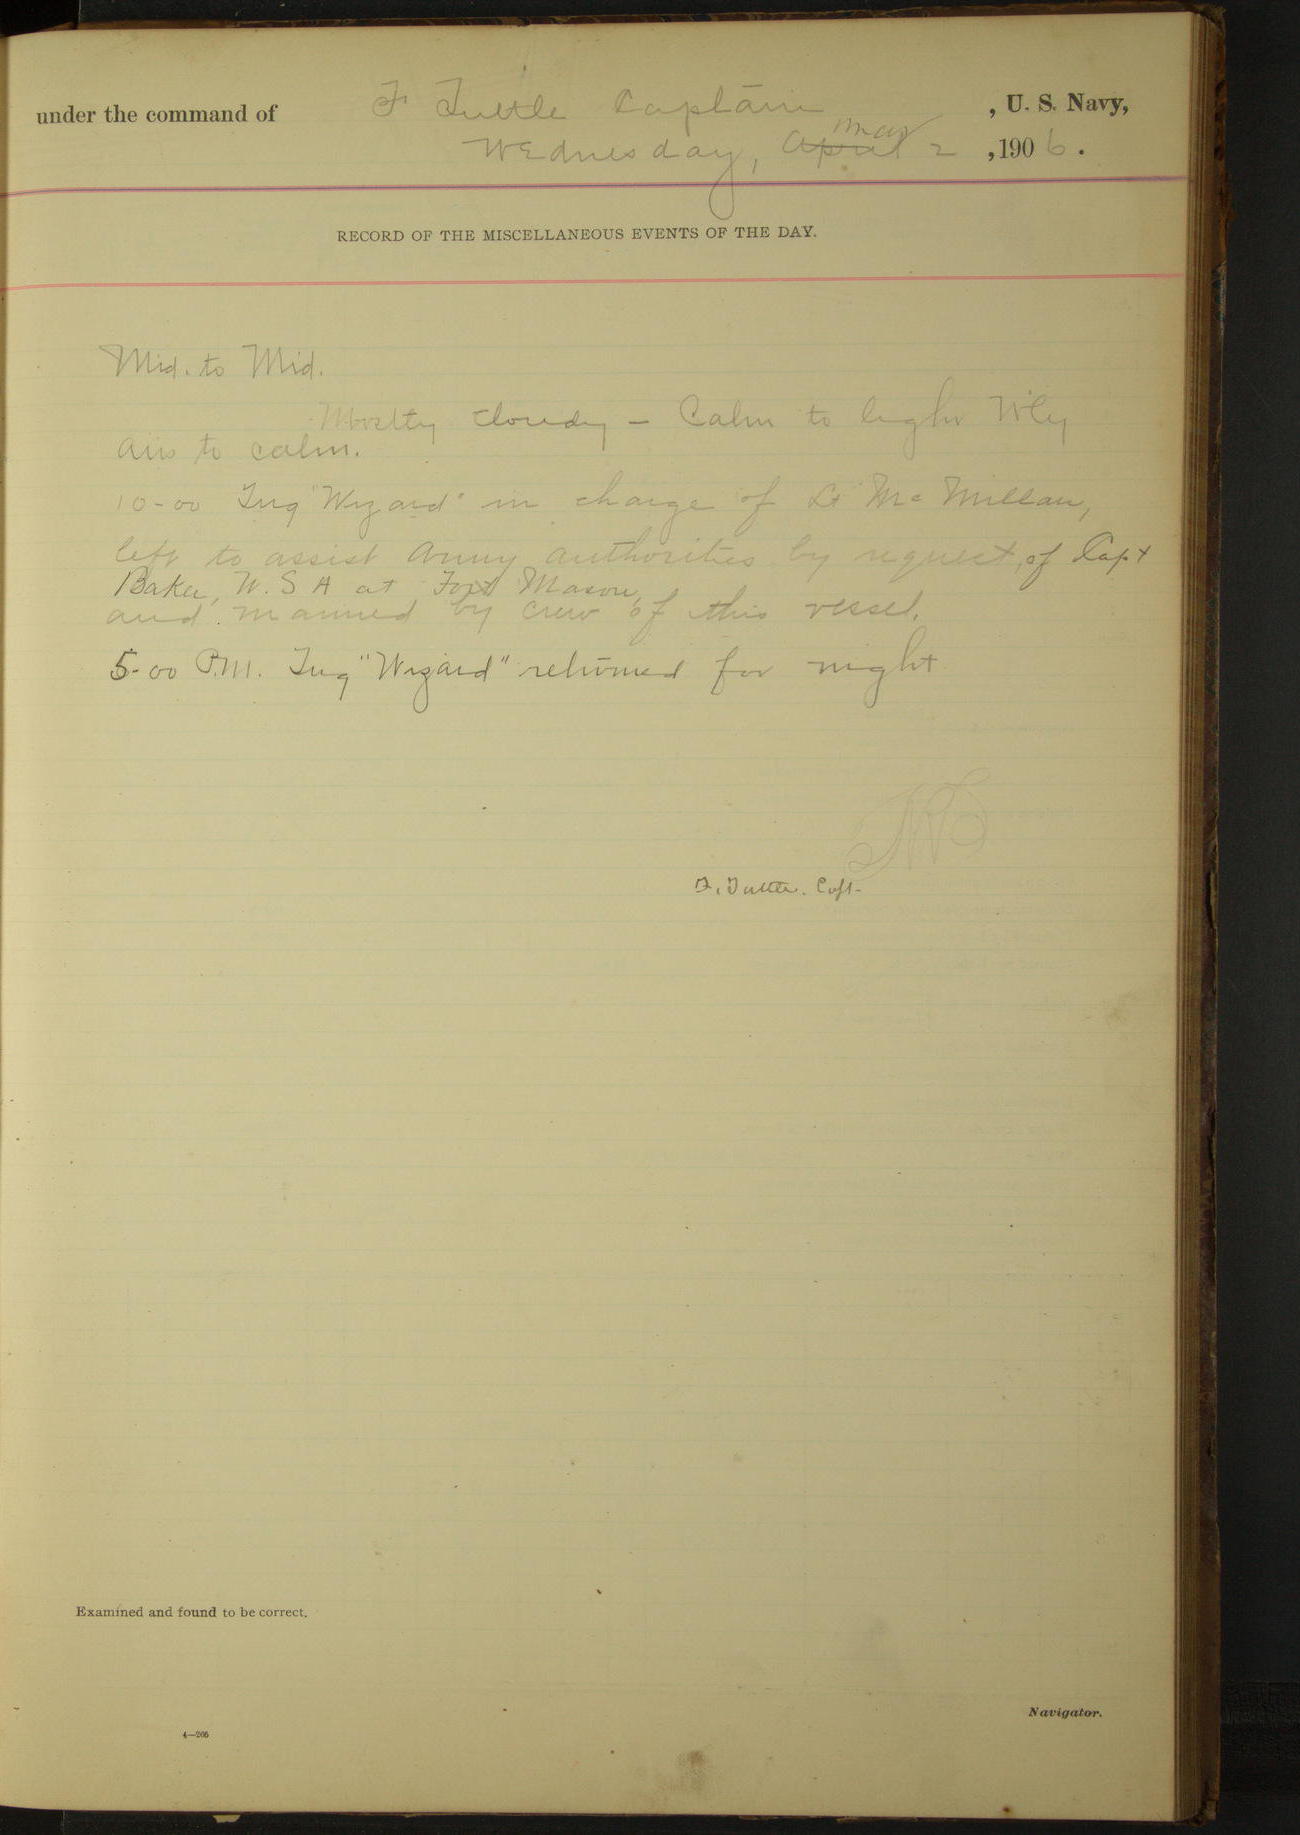 under the command of F Tuttle Captain , U. S. Navy,
Wednesday, April May 2 , 1906.
RECORD OF THE MISCELLANEOUS EVENTS OF THE DAY.
Mid. to Mid.
Mostly cloudy – Calm to light W'ly
airs to calm.
10-00 Tug "Wizard" in charge of Lt McMillan,
left to assist Army authorities by request, of Capt
Baker, U. S A at Fort Mason,
and manned by crew of this vessel.
5-00 P.M. Tug "Wizard" returned for night
F. Tuttle. Capt.
Examined and found to be correct.
Navigator.
4—266